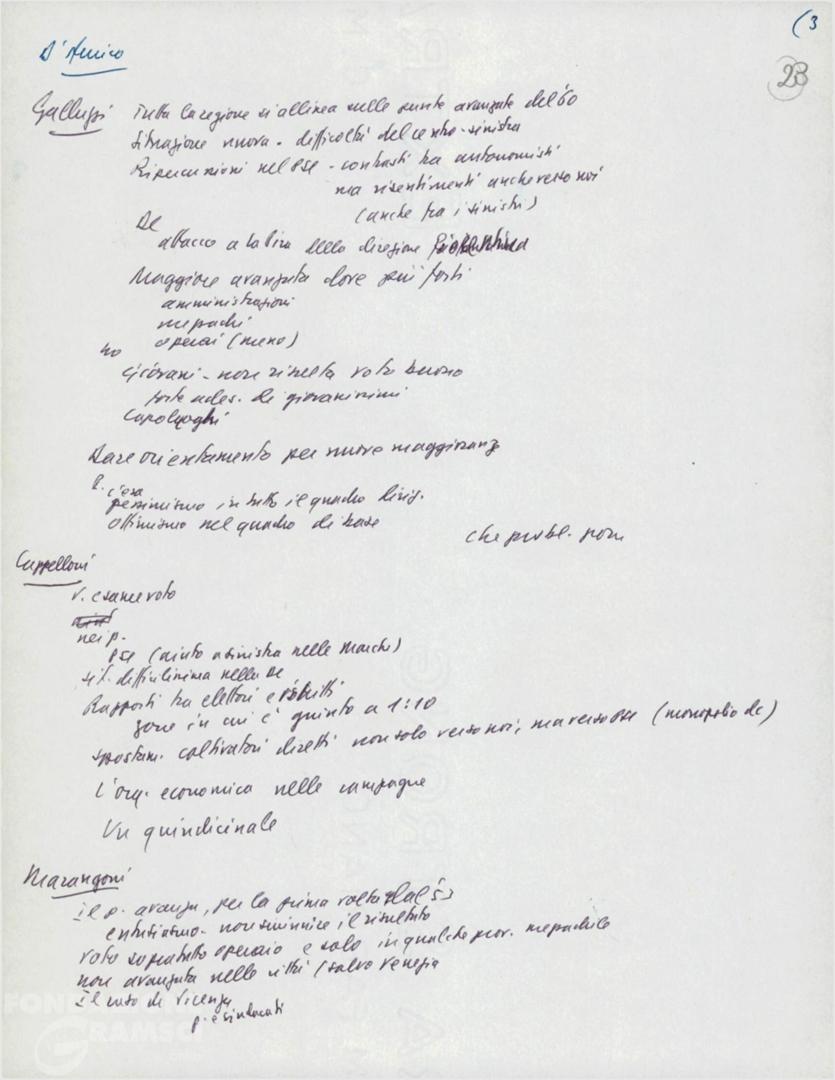 (3
23
D'Amico
Galluppi Tutta la regione si allinea sulle punte avanzate del 60
Situazione nuova - difficoltà del centro-sinistra
Ripercussioni nel PSI - contrasti tra autonomisti
ma risentimenti anche verso noi
(anche tra i sinistri)
DC
attacco a La Pira della direzione fiorentina
Maggiore avanzata dove più forti
amministrazioni
mezzadri
operai (meno)
no
Giovani - non risulta voto buono
forte ades. di giovanissimi
Capoluoghi
Dare orientamento per nuove maggioranze
c'era
pessimismo in tutto il quadro dirig.
ottimismo nel quadro di base
che probl. pone
Cappelloni
v. esame voto
nei p.
PSI (aiuto a sinistra nelle Marche)
sit. difficilissima nella DC
Rapporti tra elettori e iscritti
zone in cui è giunto a 1:10
spostam. coltivatori diretti non solo verso noi, ma verso PSI (monopolio dc)
L'org. economica nelle campagne
Un quindicinale
Marangoni
il p. avanza, per la prima volta dal 53
entusiasmo - non sminuire il risultato
voto soprattutto operaio e solo in qualche prov. mezzadrile
non avanzata nelle città (salvo Venezia
il caso di Vicenza
p. e sindacati
FONDAZIONE
GRAMSCI